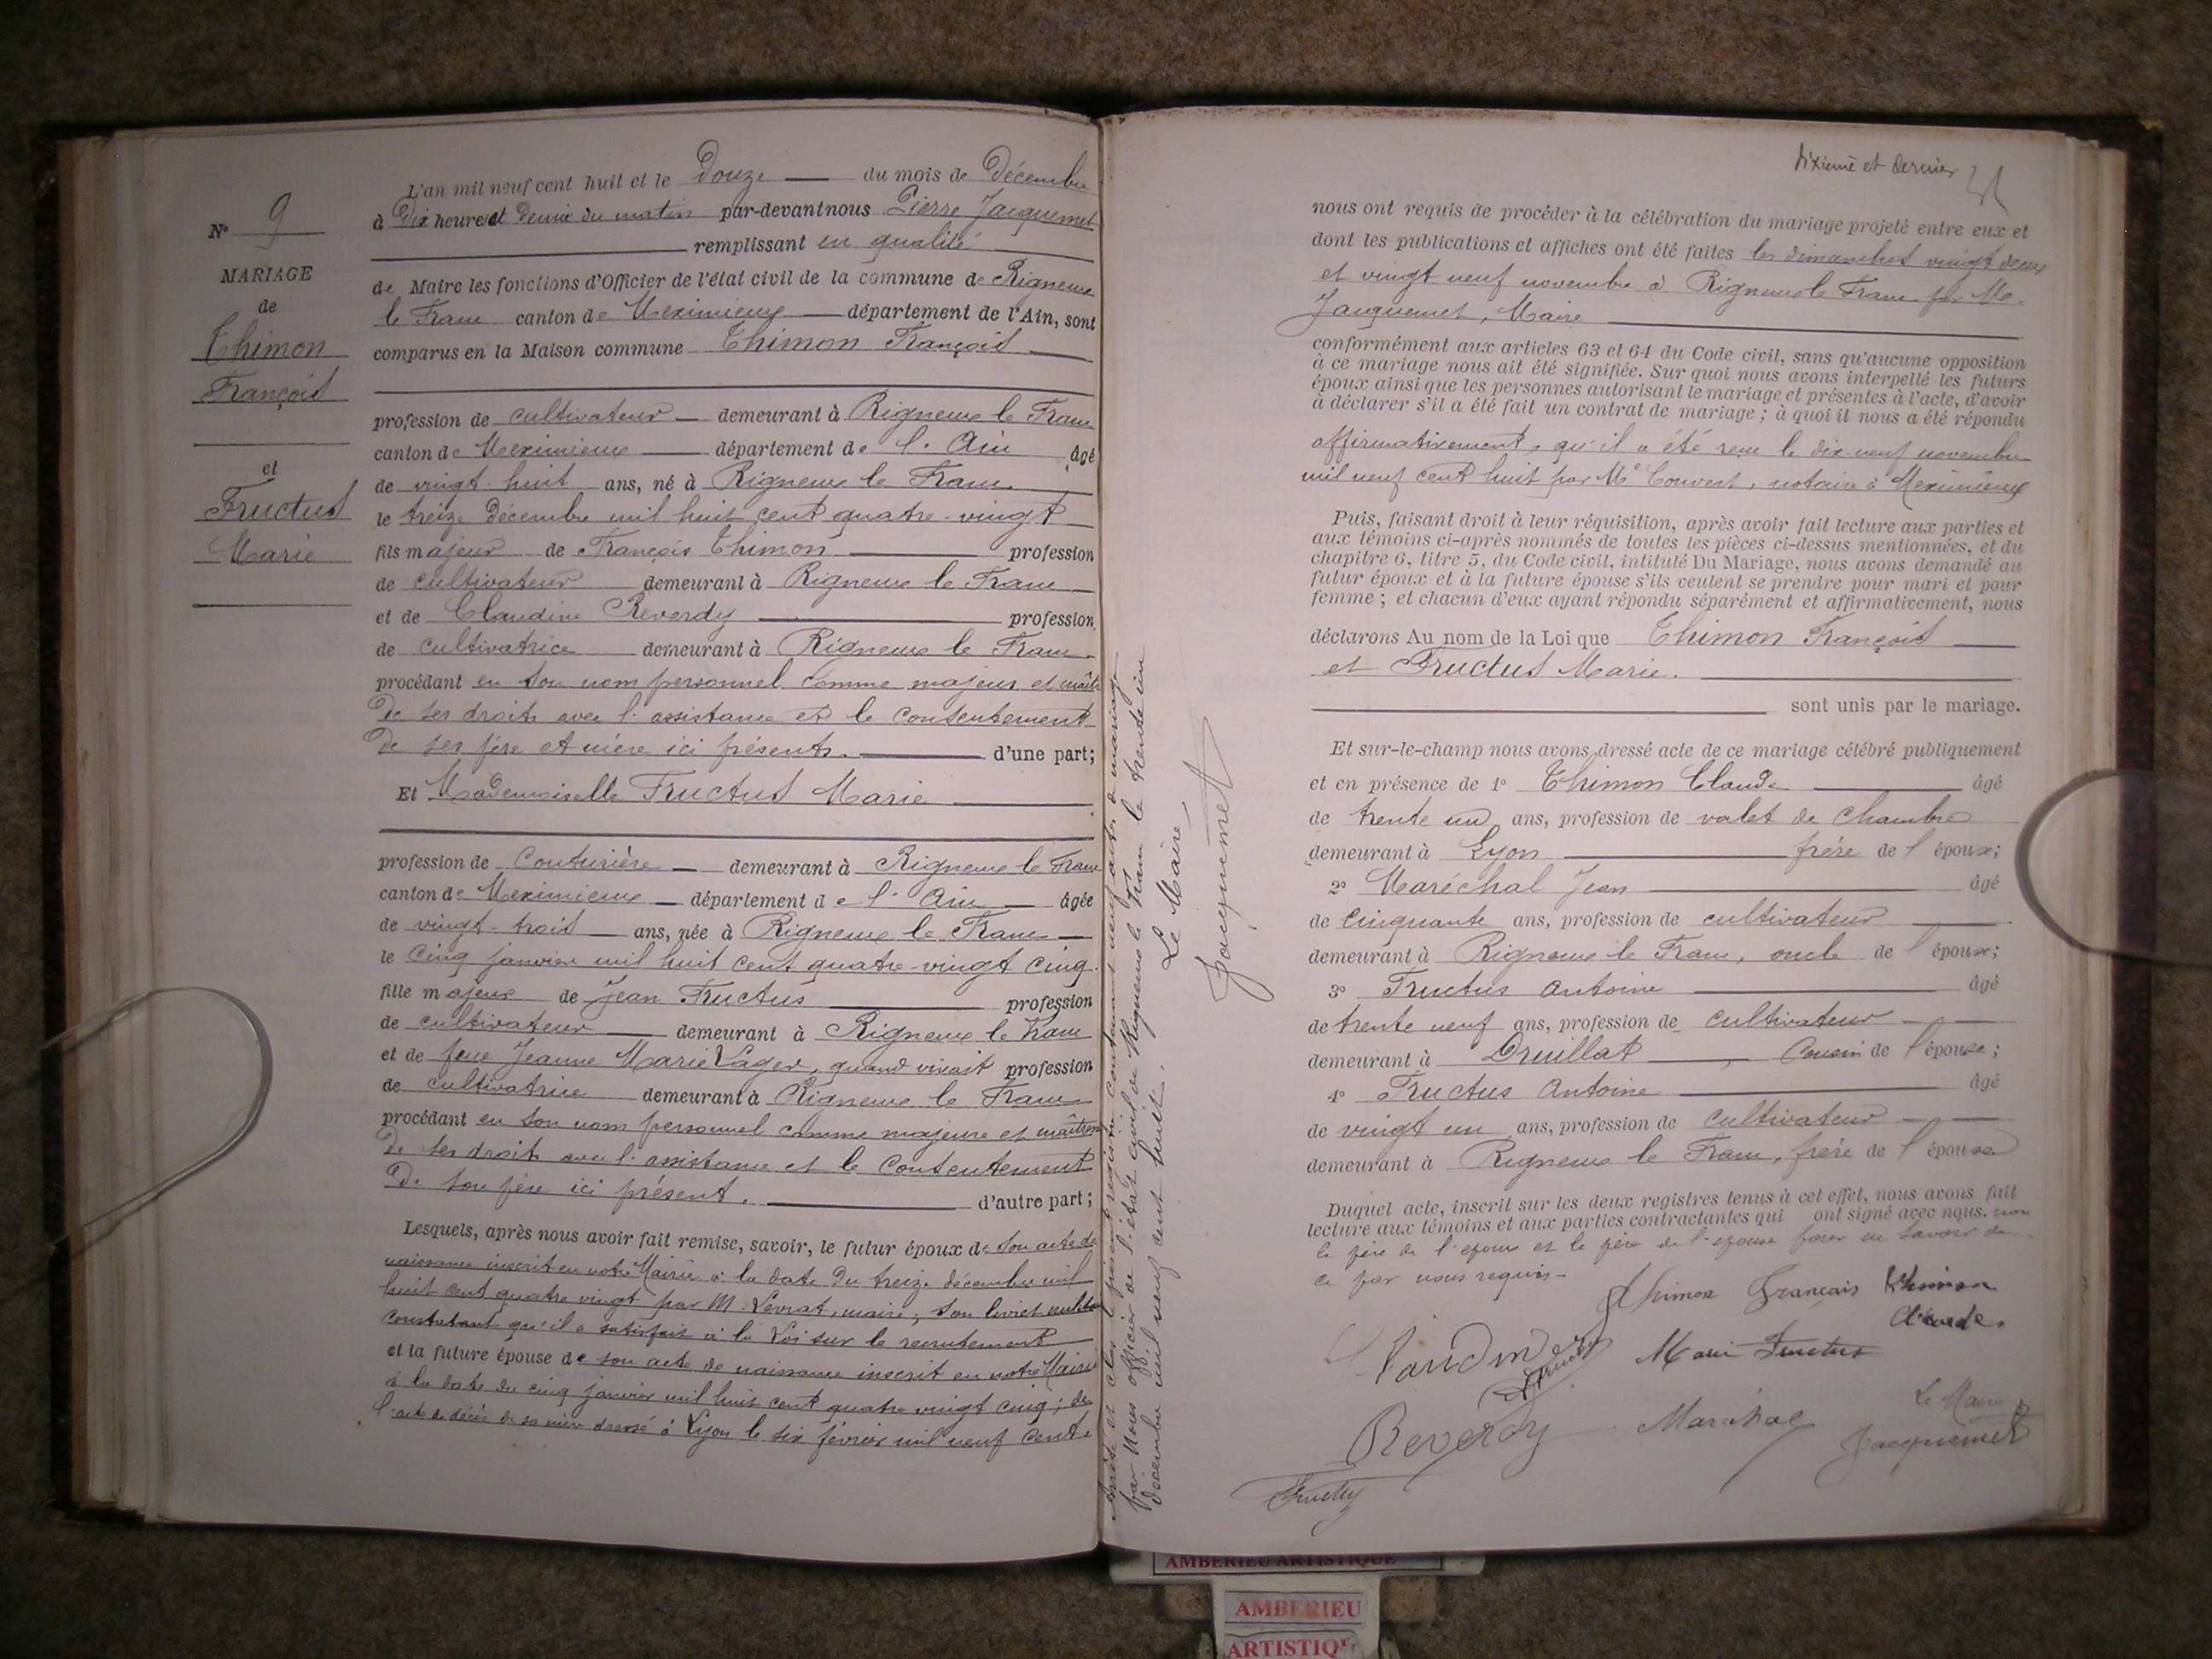 N° 9
MARIAGE
de
Thimon
François
et
Fructus
Marie
L'an mil neuf cent huit et le Douze du mois de Décembre
à Dix heures et demie du matin par-devant nous Pierre Jacquemet
remplissant en qualité
de Maire les fonctions d'Officier de l'état civil de la commune de Rigneux
le Franc canton de Meximieux département de l'Ain, sont
comparus en la Maison commune Thimon François
profession de cultivateur demeurant à Rigneux le Franc
canton de Meximieux département de l'Ain âgé
de vingt-huit ans, né à Rigneux le Franc
le treize Décembre mil huit cent quatre-vingt
fils majeur de François Thimon profession
de cultivateur demeurant à Rigneux le Franc
et de Claudine Reverdy profession
de cultivatrice demeurant à Rigneux le Franc
procédant en son nom personnel comme majeur et maître
De ses droits avec l'assistance et le consentement
De ses père et mère ici présents. d'une part;
Et Mademoiselle Fructus Marie
profession de Couturière demeurant à Rigneux le Franc
canton de Meximieux département de l'Ain âgée
de vingt-trois ans, née à Rigneux le Franc
le Cinq janvier mil huit cent quatre-vingt cinq.
fille majeure de Jean Fructus profession
de cultivateur demeurant à Rigneux le Franc
et de feue Jeanne Marie Lager, quand vivait profession
de cultivatrice demeurant à Rigneux le Franc
procédant en son nom personnel comme majeure et maîtresse
De ses droits avec l'assistance et le Consentement
De son père ici présent. d'autre part;
Lesquels, après nous avoir fait remise, savoir, le futur époux de son acte de
naissance inscrit en notre Mairie à la date du treize décembre mil
huit cent quatre vingt par M. Levrat, maire; son livret militaire
constatant qu'il a satisfait à la Loi sur le recrutement
et la future épouse de son acte de naissance inscrit en notre Mairie
à la date du cinq janvier mil huit cent quatre vingt cinq; de
l'acte de décès de sa mère dressé à Lyon le six février mil neuf cent.
Arrêté et clos le présent registre contenant neuf actes de mariage
par Nous officier de l'état civil de Rigneux le Franc le trente un
décembre mil neuf cent huit.
Le Maire
Jacquemet
Dixième et dernier
nous ont requis de procéder à la célébration du mariage projeté entre eux et
dont les publications et affiches ont été faites les dimanches vingt deux
et vingt neuf novembre à Rigneux le Franc par Me.
Jacquemet, Maire
conformément aux articles 63 et 64 du Code civil, sans qu'aucune opposition
à ce mariage nous ait été signifiée. Sur quoi nous avons interpellé les futurs
époux ainsi que les personnes autorisant le mariage et présentes à l'acte, d'avoir
à déclarer s'il a été fait un contrat de mariage; à quoi il nous a été répondu
affirmativement, qu'il a été reçu le dix-neuf novembre
mil neuf cent huit par Me Convert, notaire à Meximieux
Puis, faisant droit à leur réquisition, après avoir fait lecture aux parties et
aux témoins ci-après nommés de toutes les pièces ci-dessus mentionnées, et du
chapitre 6, titre 5, du Code civil, intitulé Du Mariage, nous avons demandé au
futur époux et à la future épouse s'ils veulent se prendre pour mari et pour
femme; et chacun d'eux ayant répondu séparément et affirmativement, nous
déclarons Au nom de la Loi que Thimon François
et Fructus Marie.
sont unis par le mariage.
Et sur-le-champ nous avons dressé acte de ce mariage célébré publiquement
et en présence de 1° Thimon Claude âgé
de trente un ans, profession de valet de Chambre
demeurant à Lyon frère de l'époux;
2° Maréchal Jean âgé
de Cinquante ans, profession de cultivateur
demeurant à Rigneux le Franc, oncle de l'époux;
3° Fructus Antoine âgé
de trente neuf ans, profession de cultivateur
demeurant à Druillat, Cousin de l'épouse;
4° Fructus Antoine âgé
de vingt un ans, profession de cultivateur
demeurant à Rigneux le Franc, frère de l'épouse
Duquel acte, inscrit sur les deux registres tenus à cet effet, nous avons fait
lecture aux témoins et aux parties contractantes qui ont signé avec nous, non
le père de l'époux et le père de l'épouse pour ne savoir de
ce par nous requis-
Thimon Français Thimon
Claude.
Claudine Fructus Marie Fructus
Reverdy Maréchal Le Maire
Jacquemet
Fructus
AMBERIEU ARTISTIQUE
AMBERIEU
ARTISTIQU